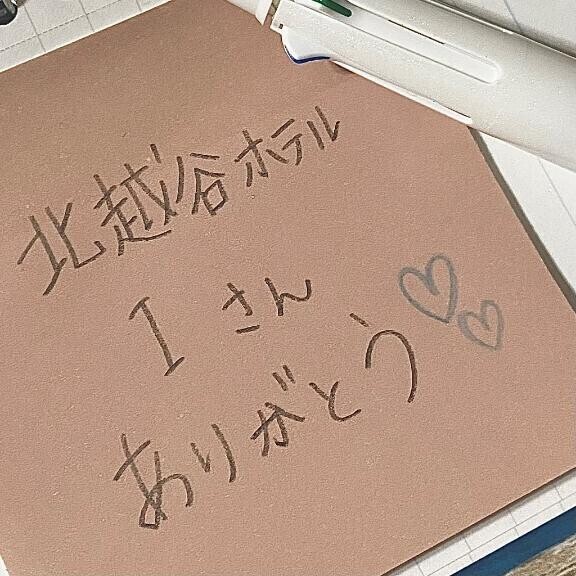 北越谷ホテル
I さん
ありがとう